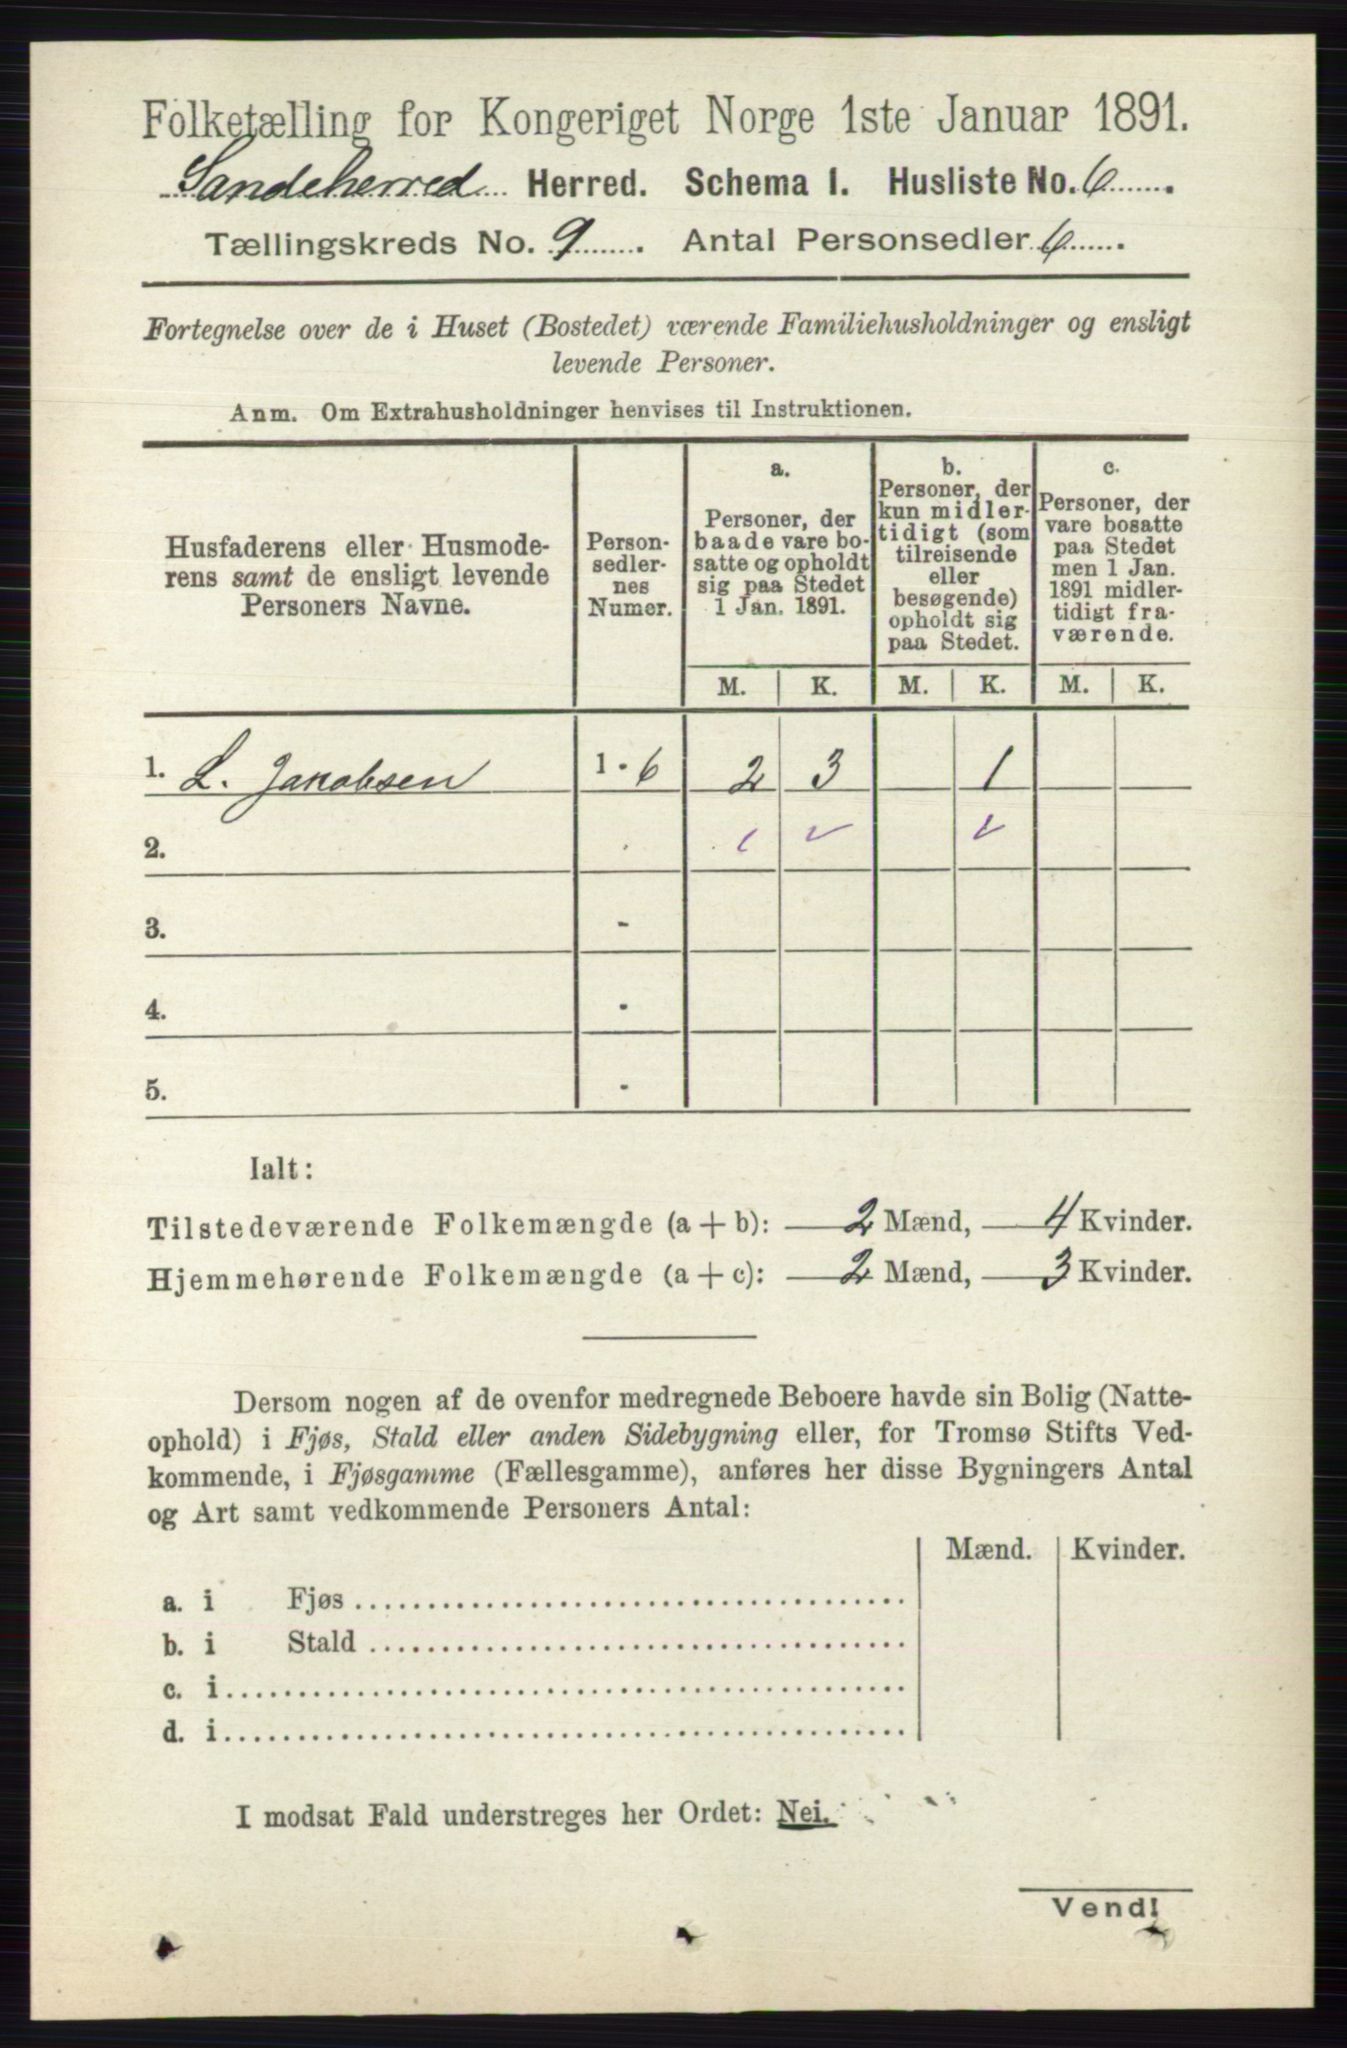 Folketælling for Kongeriget Norge 1ste Januar 1891.
Sandeherred Herred. Schema 1. Husliste No. 6
Tællingskreds No. 9. Antal Personsedler 6
Fortegnelse over de i Huset (Bostedet) værende Familiehusholdninger og ensligt
levende Personer.
Anm. Om Extrahusholdninger henvises til Instruktionen.
Husfaderens eller Husmode-
rens samt de ensligt levende
Personers Navne.
Person-
sedler-
nes
Numer.
a.
Personer, der
baade vare bo-
satte og opholdt
sig paa Stedet
1 Jan. 1891.
b.
Personer, der
kun midler-
tidigt (som
tilreisende
eller
besøgende)
opholdt sig
paa Stedet.
c.
Personer, der
vare bosatte
paa Stedet
men 1 Jan.
1891 midler-
tidigt fra-
værende.
M. K. M. K. M. K.
1. L. Jakobsen 1 - 6 2 3 1
2.
3. -
4. -
5. -
Ialt:
Tilstedeværende Folkemængde (a + b): — 2 Mænd, — 4 Kvinder.
Hjemmehørende Folkemængde (a + c): — 2 Mænd, — 3 Kvinder.
Dersom nogen af de ovenfor medregnede Beboere havde sin Bolig (Natte-
ophold) i Fjøs, Stald eller anden Sidebygning eller, for Tromsø Stifts Ved-
kommende, i Fjøsgamme (Fællesgamme), anføres her disse Bygningers Antal
og Art samt vedkommende Personers Antal:
Mænd. Kvinder.
a. i Fjøs
b. i Stald
c. i
d. i
I modsat Fald understreges her Ordet: Nei.
Vend!